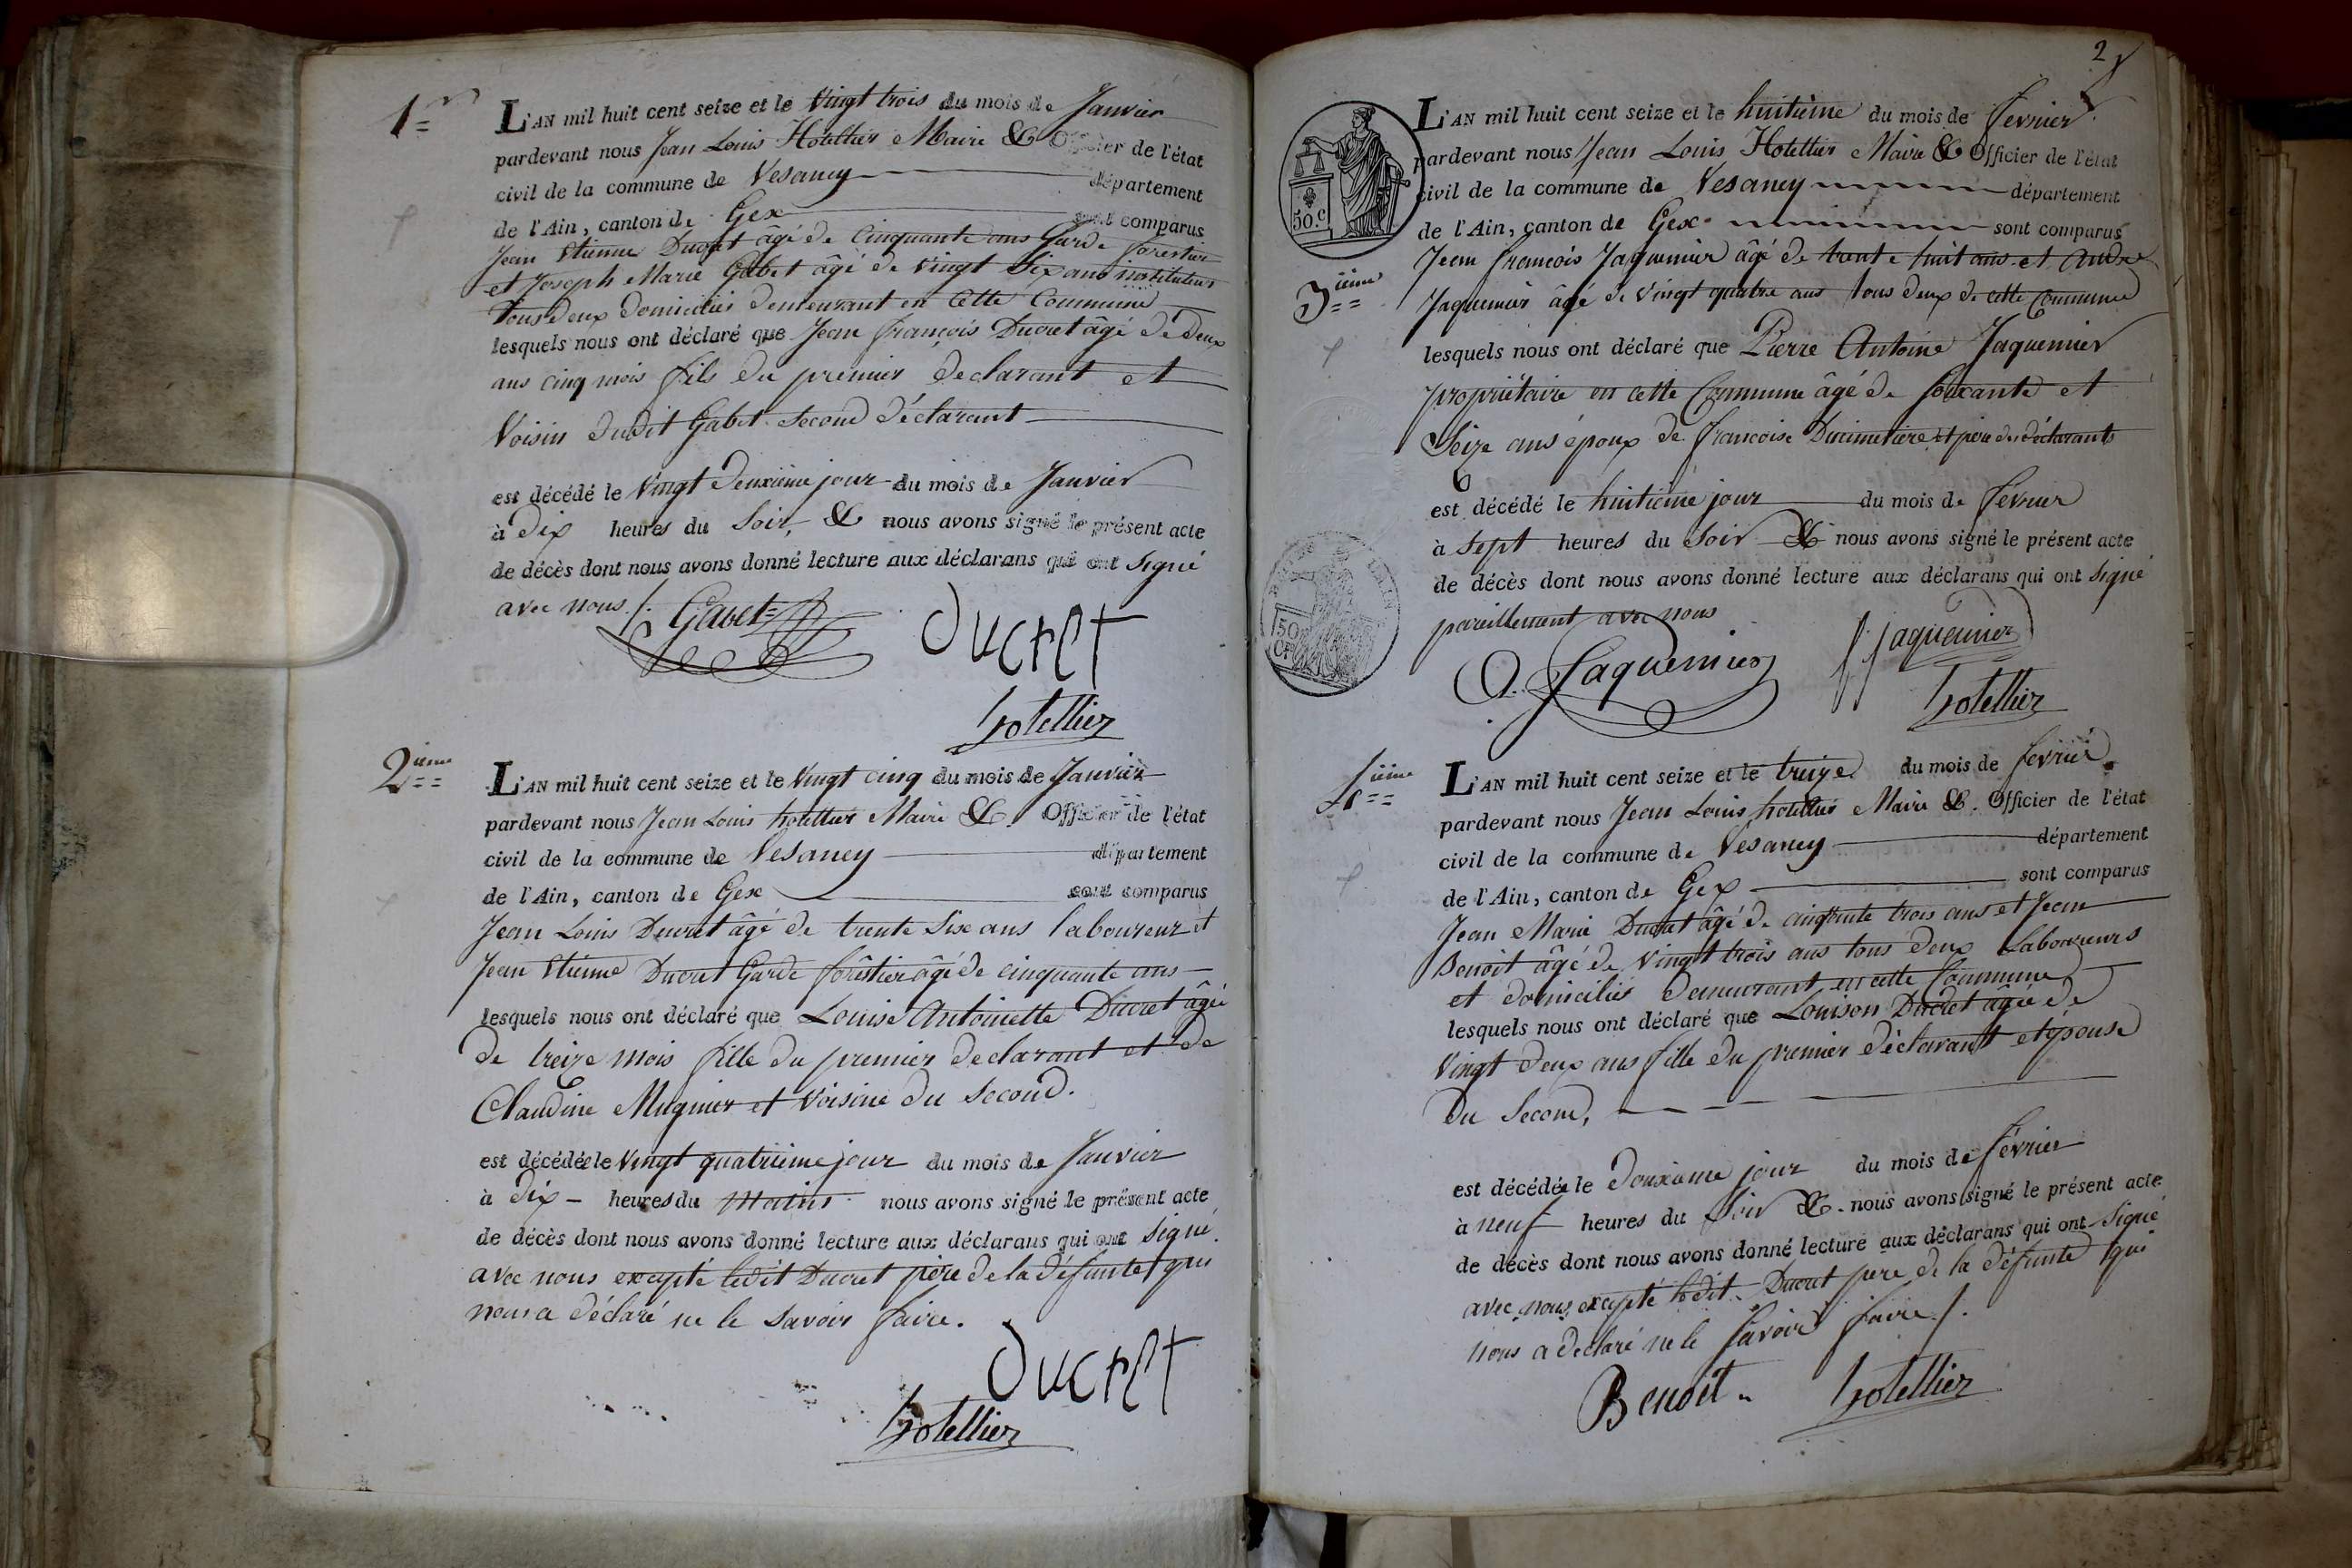 1er
L'AN mil huit cent seize et le Vingt trois du mois de Janvier
pardevant nous Jean Louis Hotellier Maire & Officier de l'état
civil de la commune de Vesancy département
de l'Ain, canton de Gex sont comparus
Jean Etienne Ducret âgé de Cinquante ans Garde forestier
et Joseph Marie Gabet âgé de Vingt Six ans instituteur
tous deux domiciliés demeurant en Cette Commune
lesquels nous ont déclaré que Jean françois Ducret âgé de deux
ans cinq mois fils du premier declarant et
Voisin dudit Gabet second déclarant
est décédé le Vingt deuxième jour du mois de Janvier
à dix heures du Soir, & nous avons signé le présent acte
de décès dont nous avons donné lecture aux déclarans qui ont Signé
avec nous /.
Gavet
Ducret
hotellier
2ième
L'AN mil huit cent seize et le Vingt cinq du mois de Janvier
pardevant nous Jean Louis hotellier Maire &. Officier de l'état
civil de la commune de Vesancy département
de l'Ain, canton de Gex sont comparus
Jean Louis Ducret âgé de trente Six ans laboureur et
Jean Etienne Ducret Garde forêstier âgé de cinquante ans
lesquels nous ont déclaré que Louise Antoinette Ducret âgée
de treize mois fille du premier declarant et de
Claudine Mugnier et Voisine du second.
est décédée le Vingt quatrième jour du mois de Janvier
à dix heures du matin nous avons signé le présent acte
de décès dont nous avons donné lecture aux déclarans qui ont signé.
avec nous excepté ledit Ducret père de la défunte qui
nous a déclaré ne le savoir faire.
Ducret
hotellier
2
50.c
L'AN mil huit cent seize et le huitième du mois de fevrier
pardevant nous Jean Louis Hotellier Maire & Officier de l'état
civil de la commune de Vesancy département
de l'Ain, canton de Gex sont comparus
3ième
Jean françois Jaquemier âgé de trente huit ans et André
Jaquemier âgé de Vingt quatre ans tous deux de cette Commune
lesquels nous ont déclaré que Pierre Antoine Jaquemier
propriétaire en cette Commune âgé de soixante et
Seize ans époux de francoise Ducimetière et père des déclarants
est décédé le huitième jour du mois de fevrier
à sept heures du soir & nous avons signé le présent acte
de décès dont nous avons donné lecture aux déclarans qui ont signé
pareillement avec nous
50
A. Jaquemier
f. jaquemier
hotellier
4ième
L'AN mil huit cent seize et le treize du mois de fevrier
pardevant nous Jean Louis hotellier Maire &. Officier de l'état
civil de la commune de Vesancy département
de l'Ain, canton de Gex sont comparus
Jean Marie Ducret âgé de cinquante trois ans et Jean
Benoit âgé de Vingt trois ans tous deux Laboureurs
et domiciliés demeurant en cette Commune
lesquels nous ont déclaré que Louison Ducret âgée de
Vingt deux ans fille du premier déclarant et épouse
du second,
est décédée le douxième jour du mois de février
à neuf heures du soir &. nous avons signé le présent acte
de décès dont nous avons donné lecture aux déclarans qui ont Signé
avec nous, excepté ledit Ducret pere de la défunte qui
nous a declaré ne le savoir faire /.
Benoit
hotellier